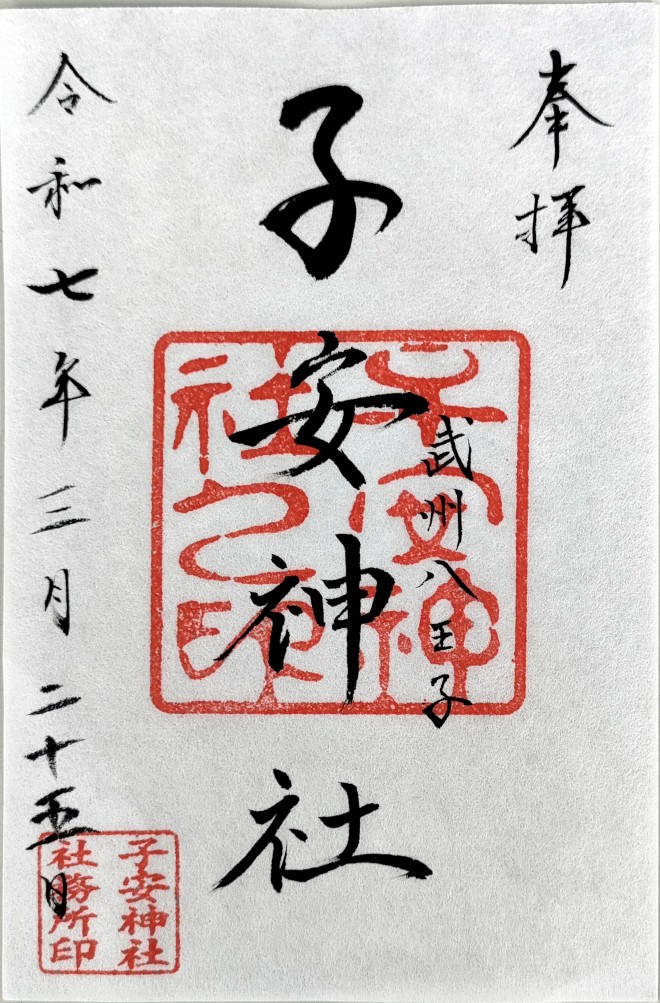 奉拝
武州八王子
子安神社
子安神
社之印
令和七年三月二十五日
子安神社
社務所印